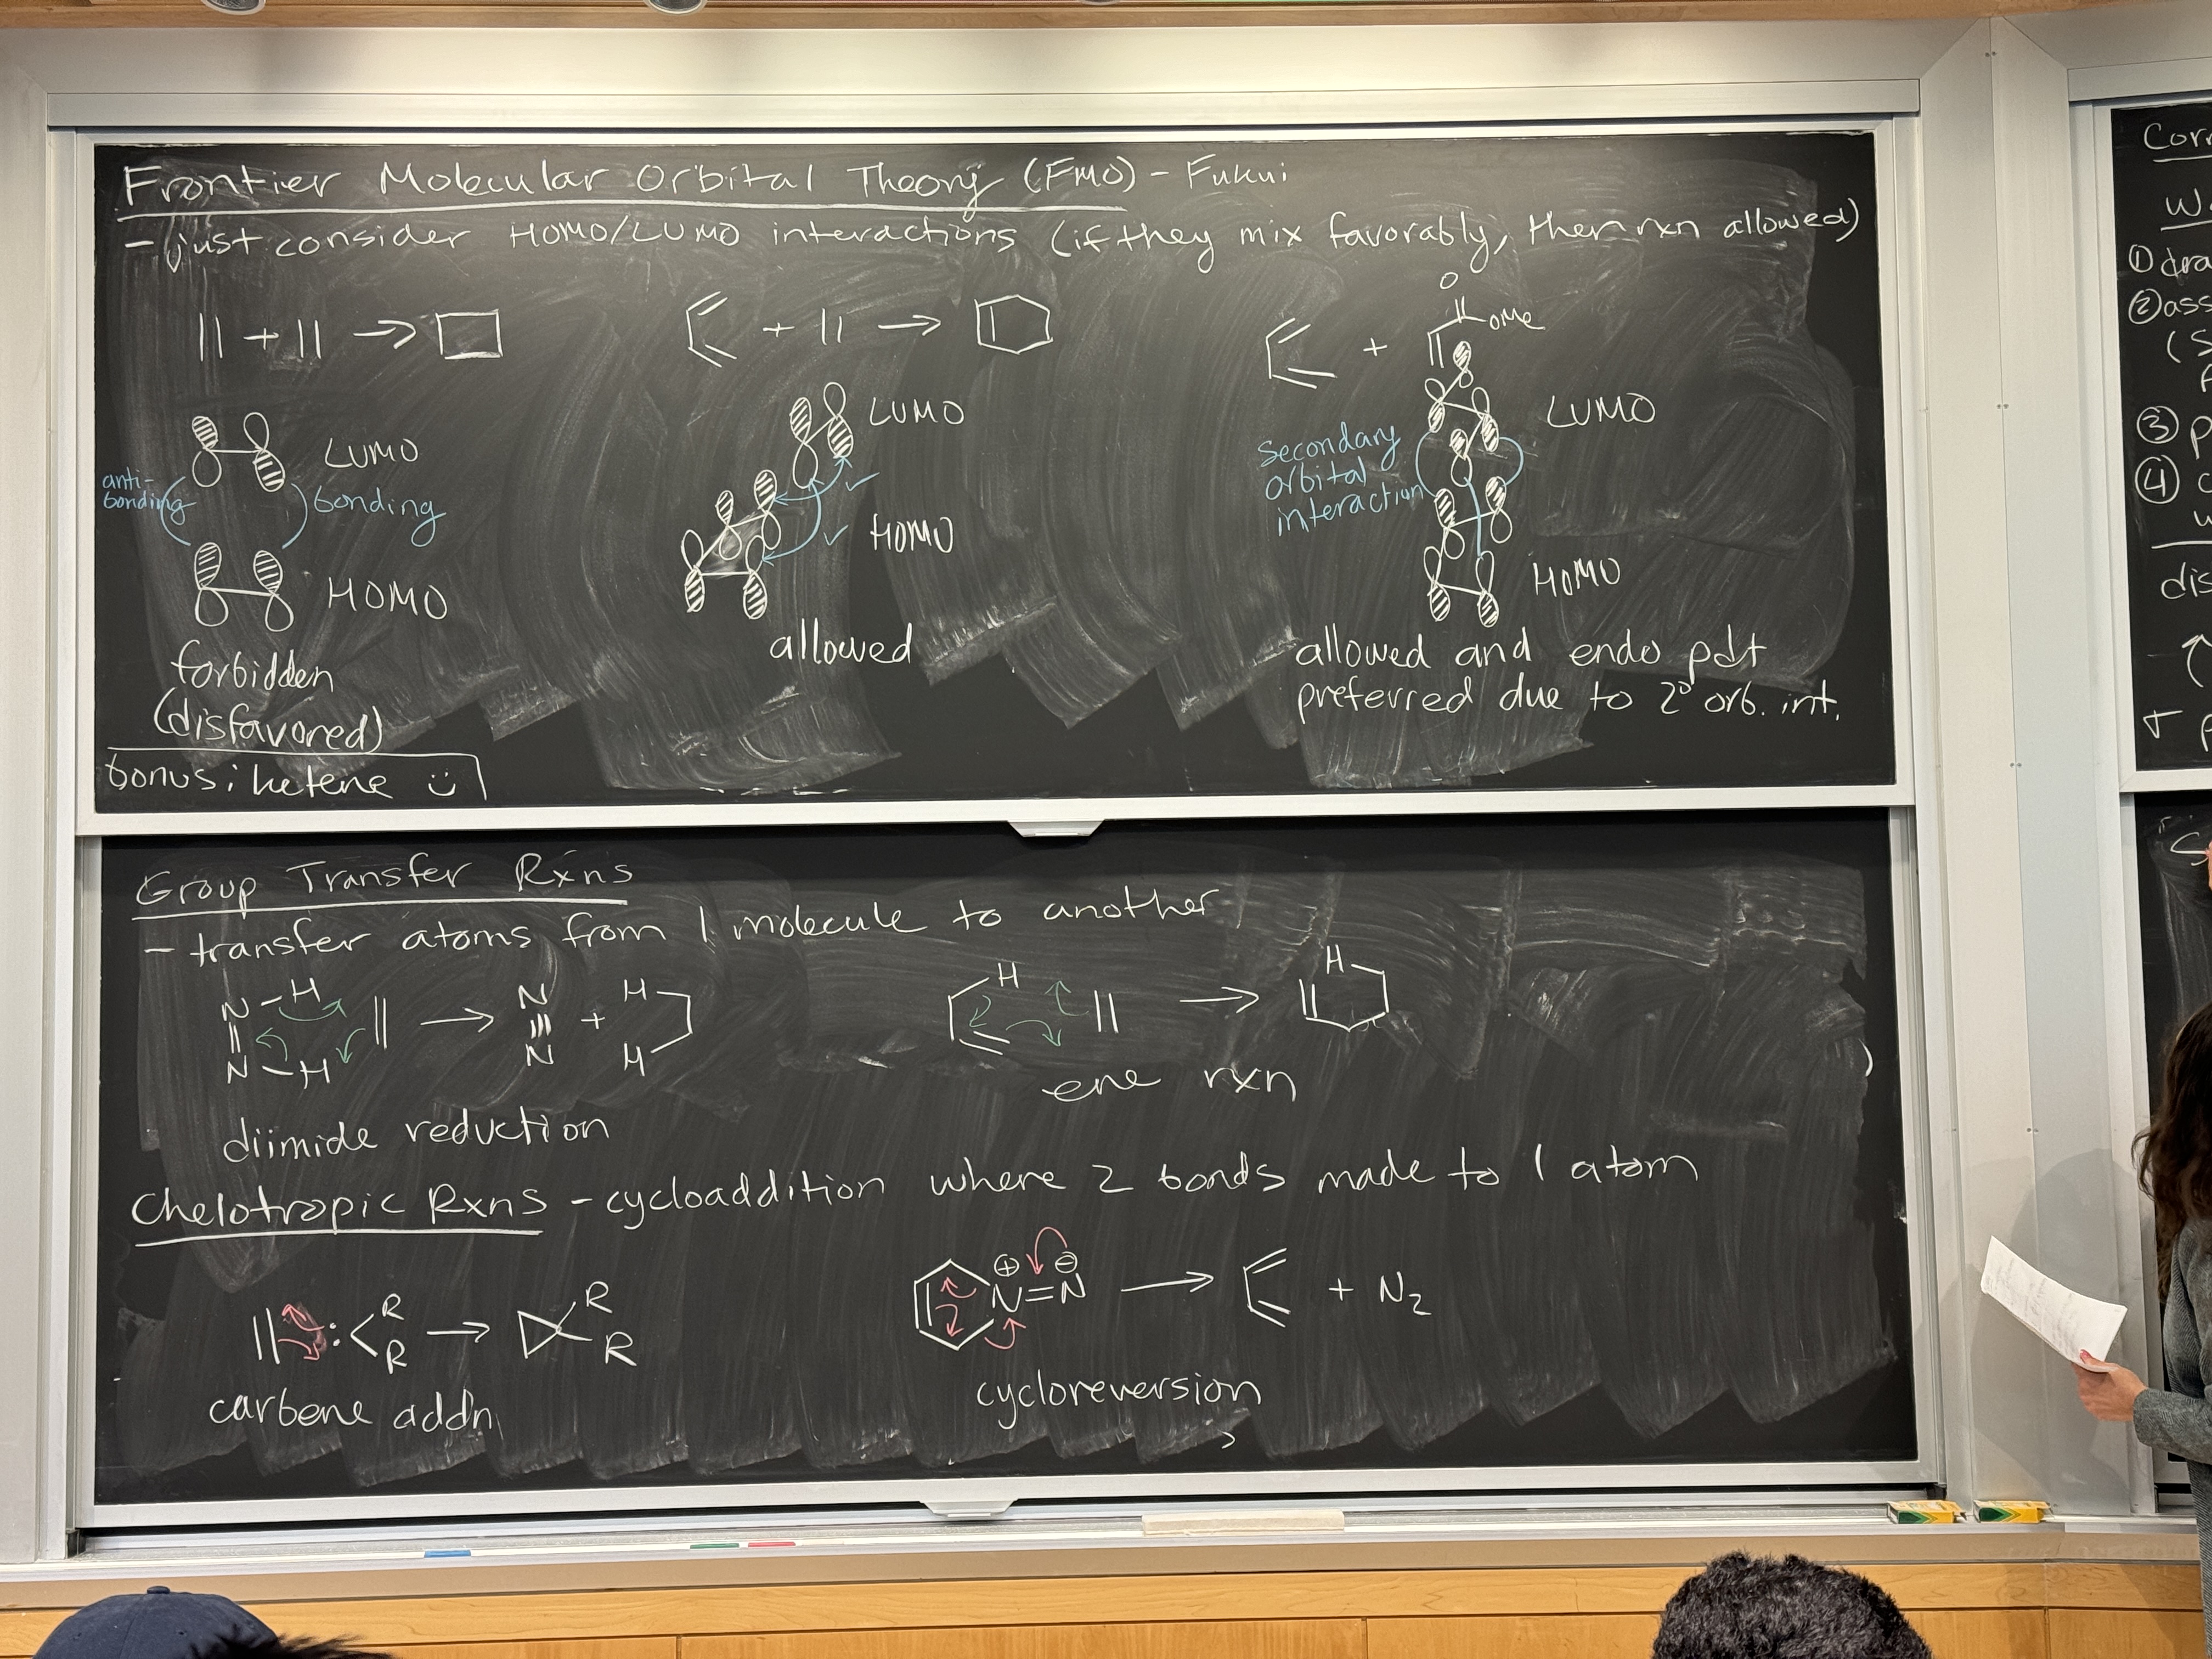 Frontier Molecular Orbital Theory (FMO) - Fukui
- just consider HOMO/LUMO interactions (if they mix favorably, then rxn allowed)
|| + || →
+ || →
+
O
OMe
LUMO
anti-
bonding
bonding
HOMO
forbidden
(disfavored)
bonus: ketene :)
LUMO
✓
✓
HOMO
allowed
Secondary
orbital
interaction
LUMO
HOMO
allowed and endo pdt
preferred due to 2° orb. int.
Group Transfer Rxns
- transfer atoms from 1 molecule to another
N - H
N - H
→
N
N
+
H
H
diimide reduction
H
→
H
ene rxn
Chelotropic Rxns - cycloaddition where 2 bonds made to 1 atom
:
R
R
→
R
R
carbene addn
⊕ ⊖
N=N → + N2
cycloreversion
Corr
①
②
(S
③ p
④ c
dis